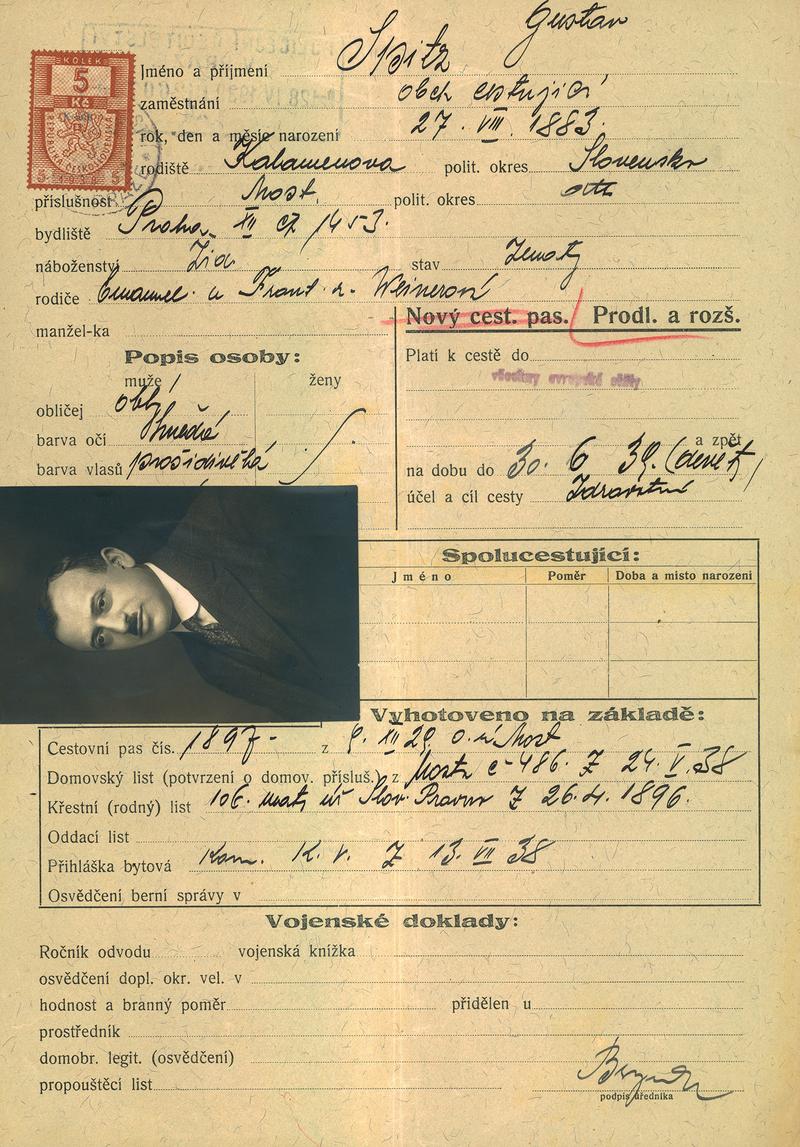 Gustav
Spitz
KOLEK
5
Kč
REPUBLIKA ČESKOSLOVENSKÁ
5 1938 5
Jméno a příjmení
zaměstnání obch cestující
rok, den a měsíc narození 27. VIII. 1883.
rodiště Kalamenova polit. okres Slovensko
příslušnost Most. polit. okres dtto
bydliště Praha XII čp 1453.
náboženství Žid stav ženatý
rodiče Emanuel a Frant. r. Weinerová
manžel-ka
Nový cest. pas. Prodl. a rozš.
Popis osoby:
muže ženy
obličej obl
barva očí hnědé
barva vlasů prošedivělá
Platí k cestě do
všechny evropské státy
a zpět
na dobu do 30. 6 39. (devět)
účel a cíl cesty Zdravotní
Spolucestující:
Jméno Poměr Doba a místo narození
Vyhotoveno na základě:
Cestovní pas čís. 1897- z 9. XII 29 Most
Domovský list (potvrzení o domov. přísluš.) z Most č-486. Z 24. V. 38
Křestní (rodný) list 106. mat. Slov. Pravno Z 26.4. 1896.
Oddací list
Přihláška bytová Kom. K. V. Z 13. VII 38
Osvědčení berní správy v
Vojenské doklady:
Ročník odvodu vojenská knížka
osvědčení dopl. okr. vel. v
hodnost a branný poměr přidělen u
prostředník
domobr. legit. (osvědčení)
propouštěcí list
podpis úředníka